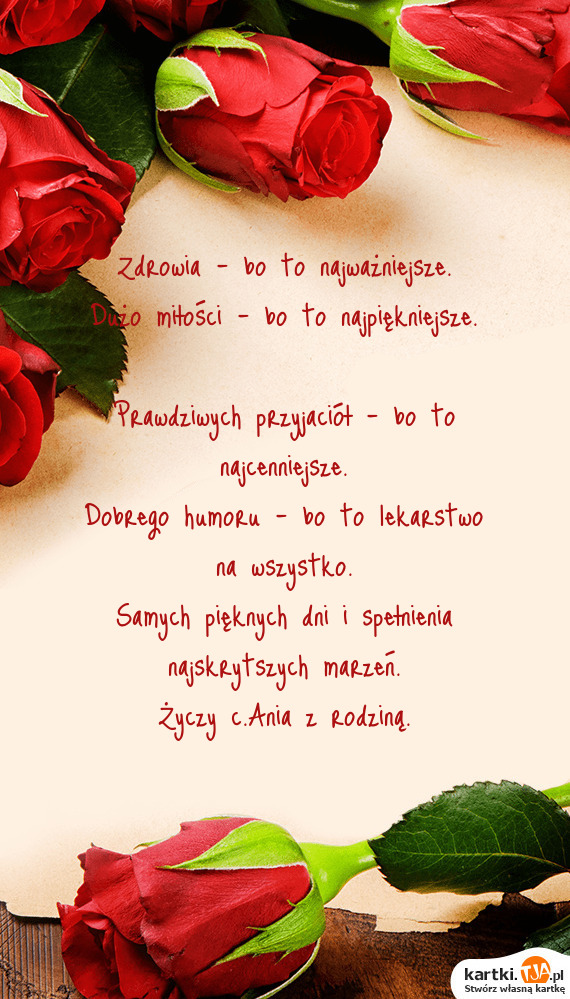 Zdrowia - bo to najważniejsze.
Dużo miłości - bo to najpiękniejsze.
Prawdziwych przyjaciół - bo to
najcenniejsze.
Dobrego humoru - bo to lekarstwo
na wszystko.
Samych pięknych dni i spełnienia
najskrytszych marzeń.
Życzy c.Ania z rodziną.
kartki.TJA.pl
Stwórz własną kartkę